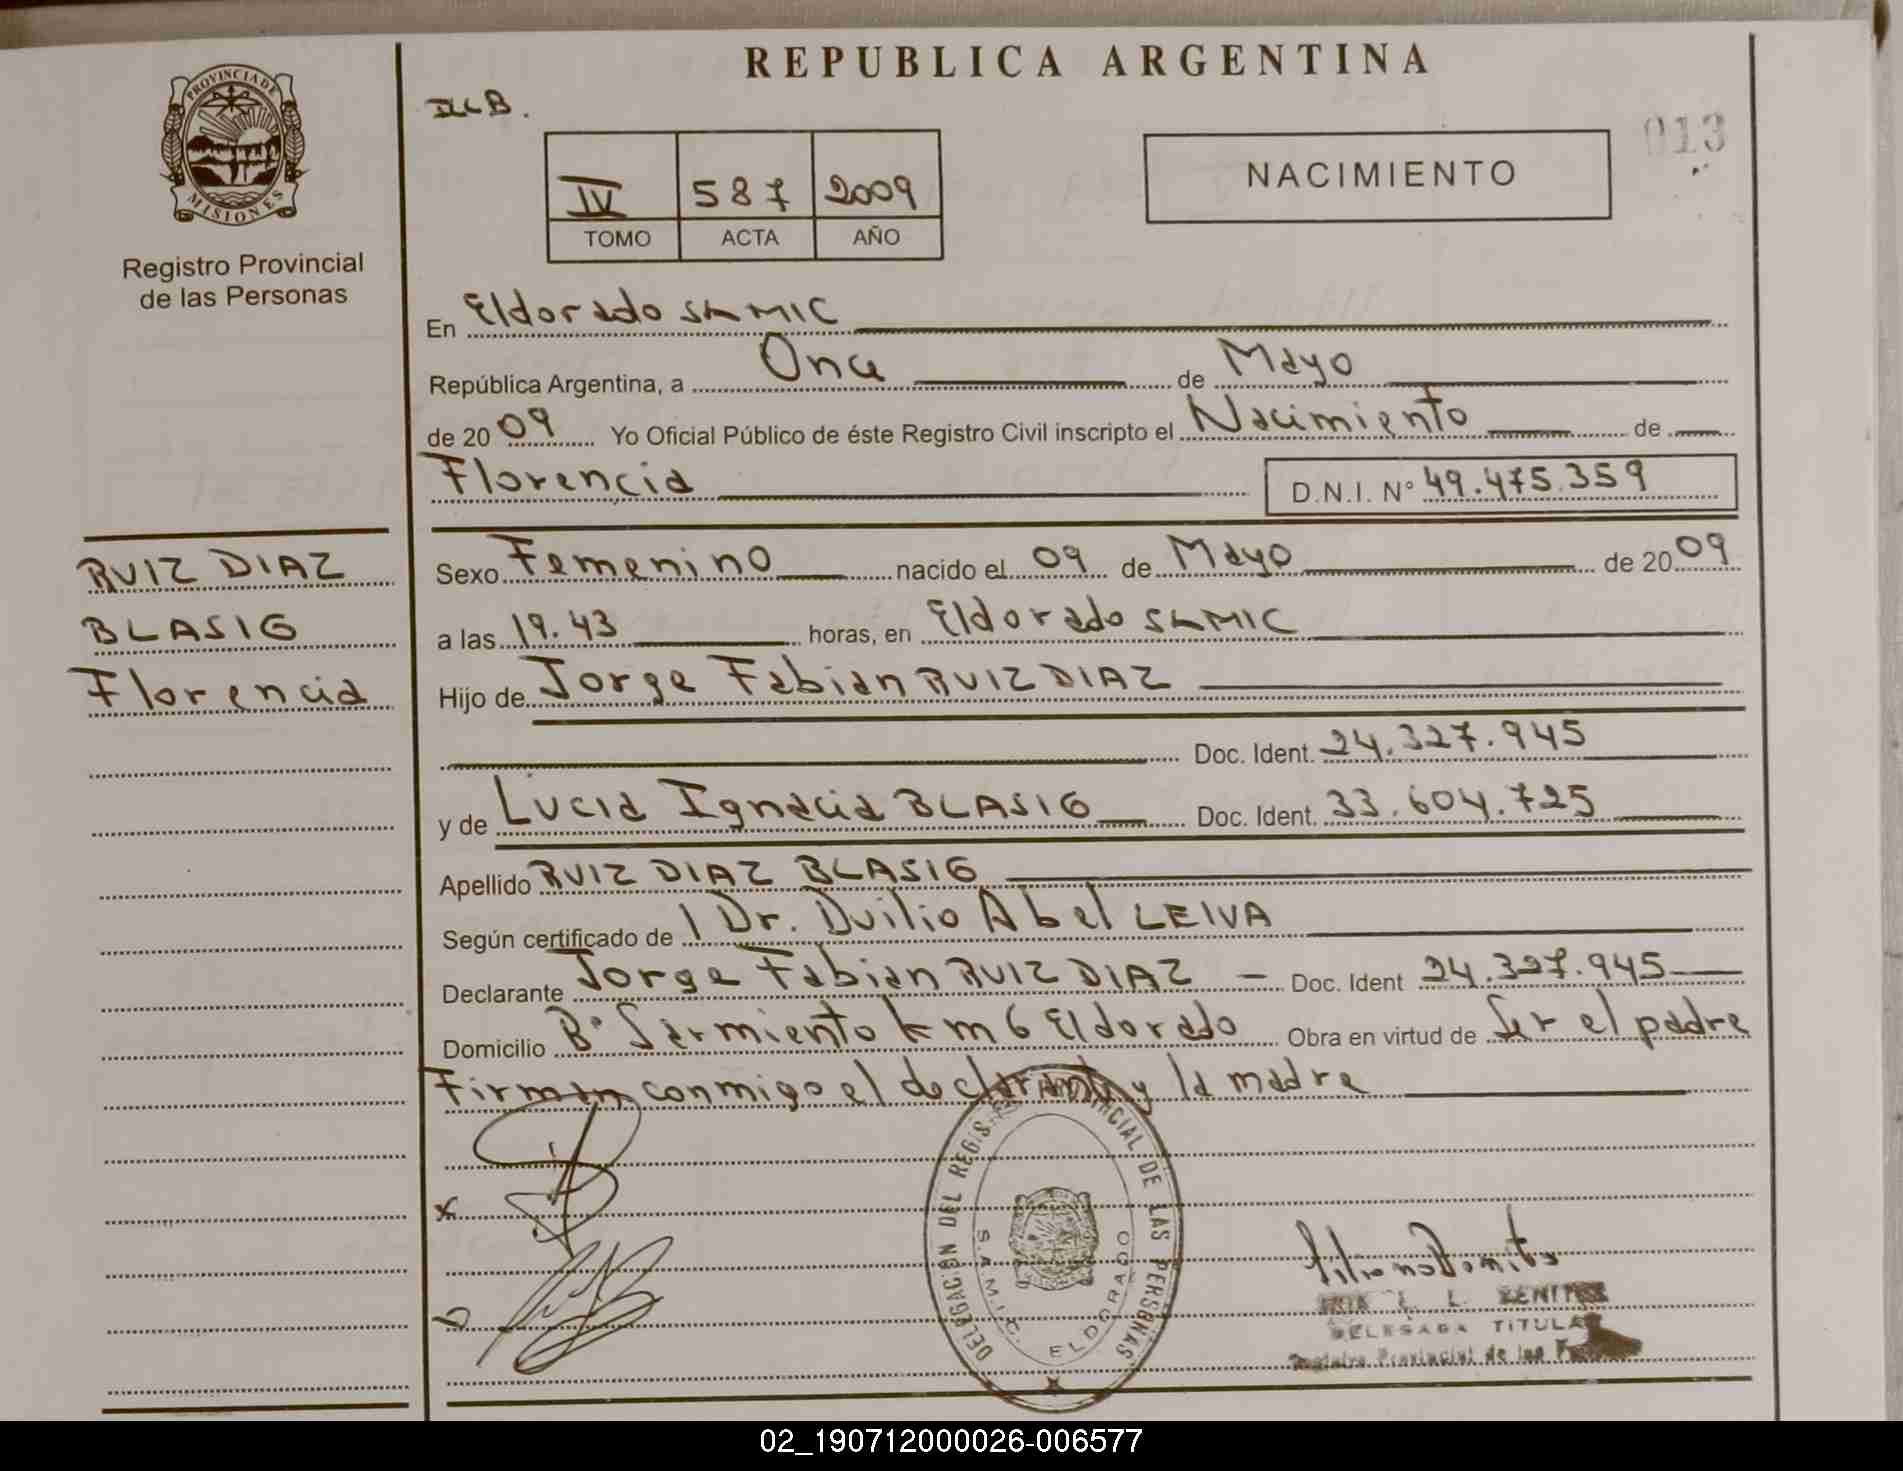 REPUBLICA ARGENTINA
PROVINCIA DE
MISIONES
Registro Provincial
de las Personas
013
IV 587 2009
TOMO ACTA AÑO
NACIMIENTO
En Eldorado SAMIC
República Argentina, a Once de Mayo
de 2009 Yo Oficial Público de éste Registro Civil inscripto el Nacimiento de
Florencia D.N.I. Nº 49.475.359
RUIZ DIAZ
BLASIG
Florencia
Sexo Femenino nacido el 09 de Mayo de 2009
a las 19.43 horas, en Eldorado SAMIC
Hijo de Jorge Fabian RUIZ DIAZ
Doc. Ident. 24.327.945
y de Lucia Ignacia BLASIG Doc. Ident. 33.604.725
Apellido RUIZ DIAZ BLASIG
Según certificado de / Dr. Duilio Abel LEIVA
Declarante Jorge Fabian RUIZ DIAZ - Doc. Ident 24.327.945
Domicilio Bº Sarmiento km 6 Eldorado Obra en virtud de Ser el padre
Firman conmigo el declarante y la madre
DELEGACION DEL REGISTRO PROVINCIAL DE LAS PERSONAS
S.A.M.I.C. ELDORADO
L. BENITEZ
DELEGADA TITULAR
Registro Provincial de las
02_190712000026-006577